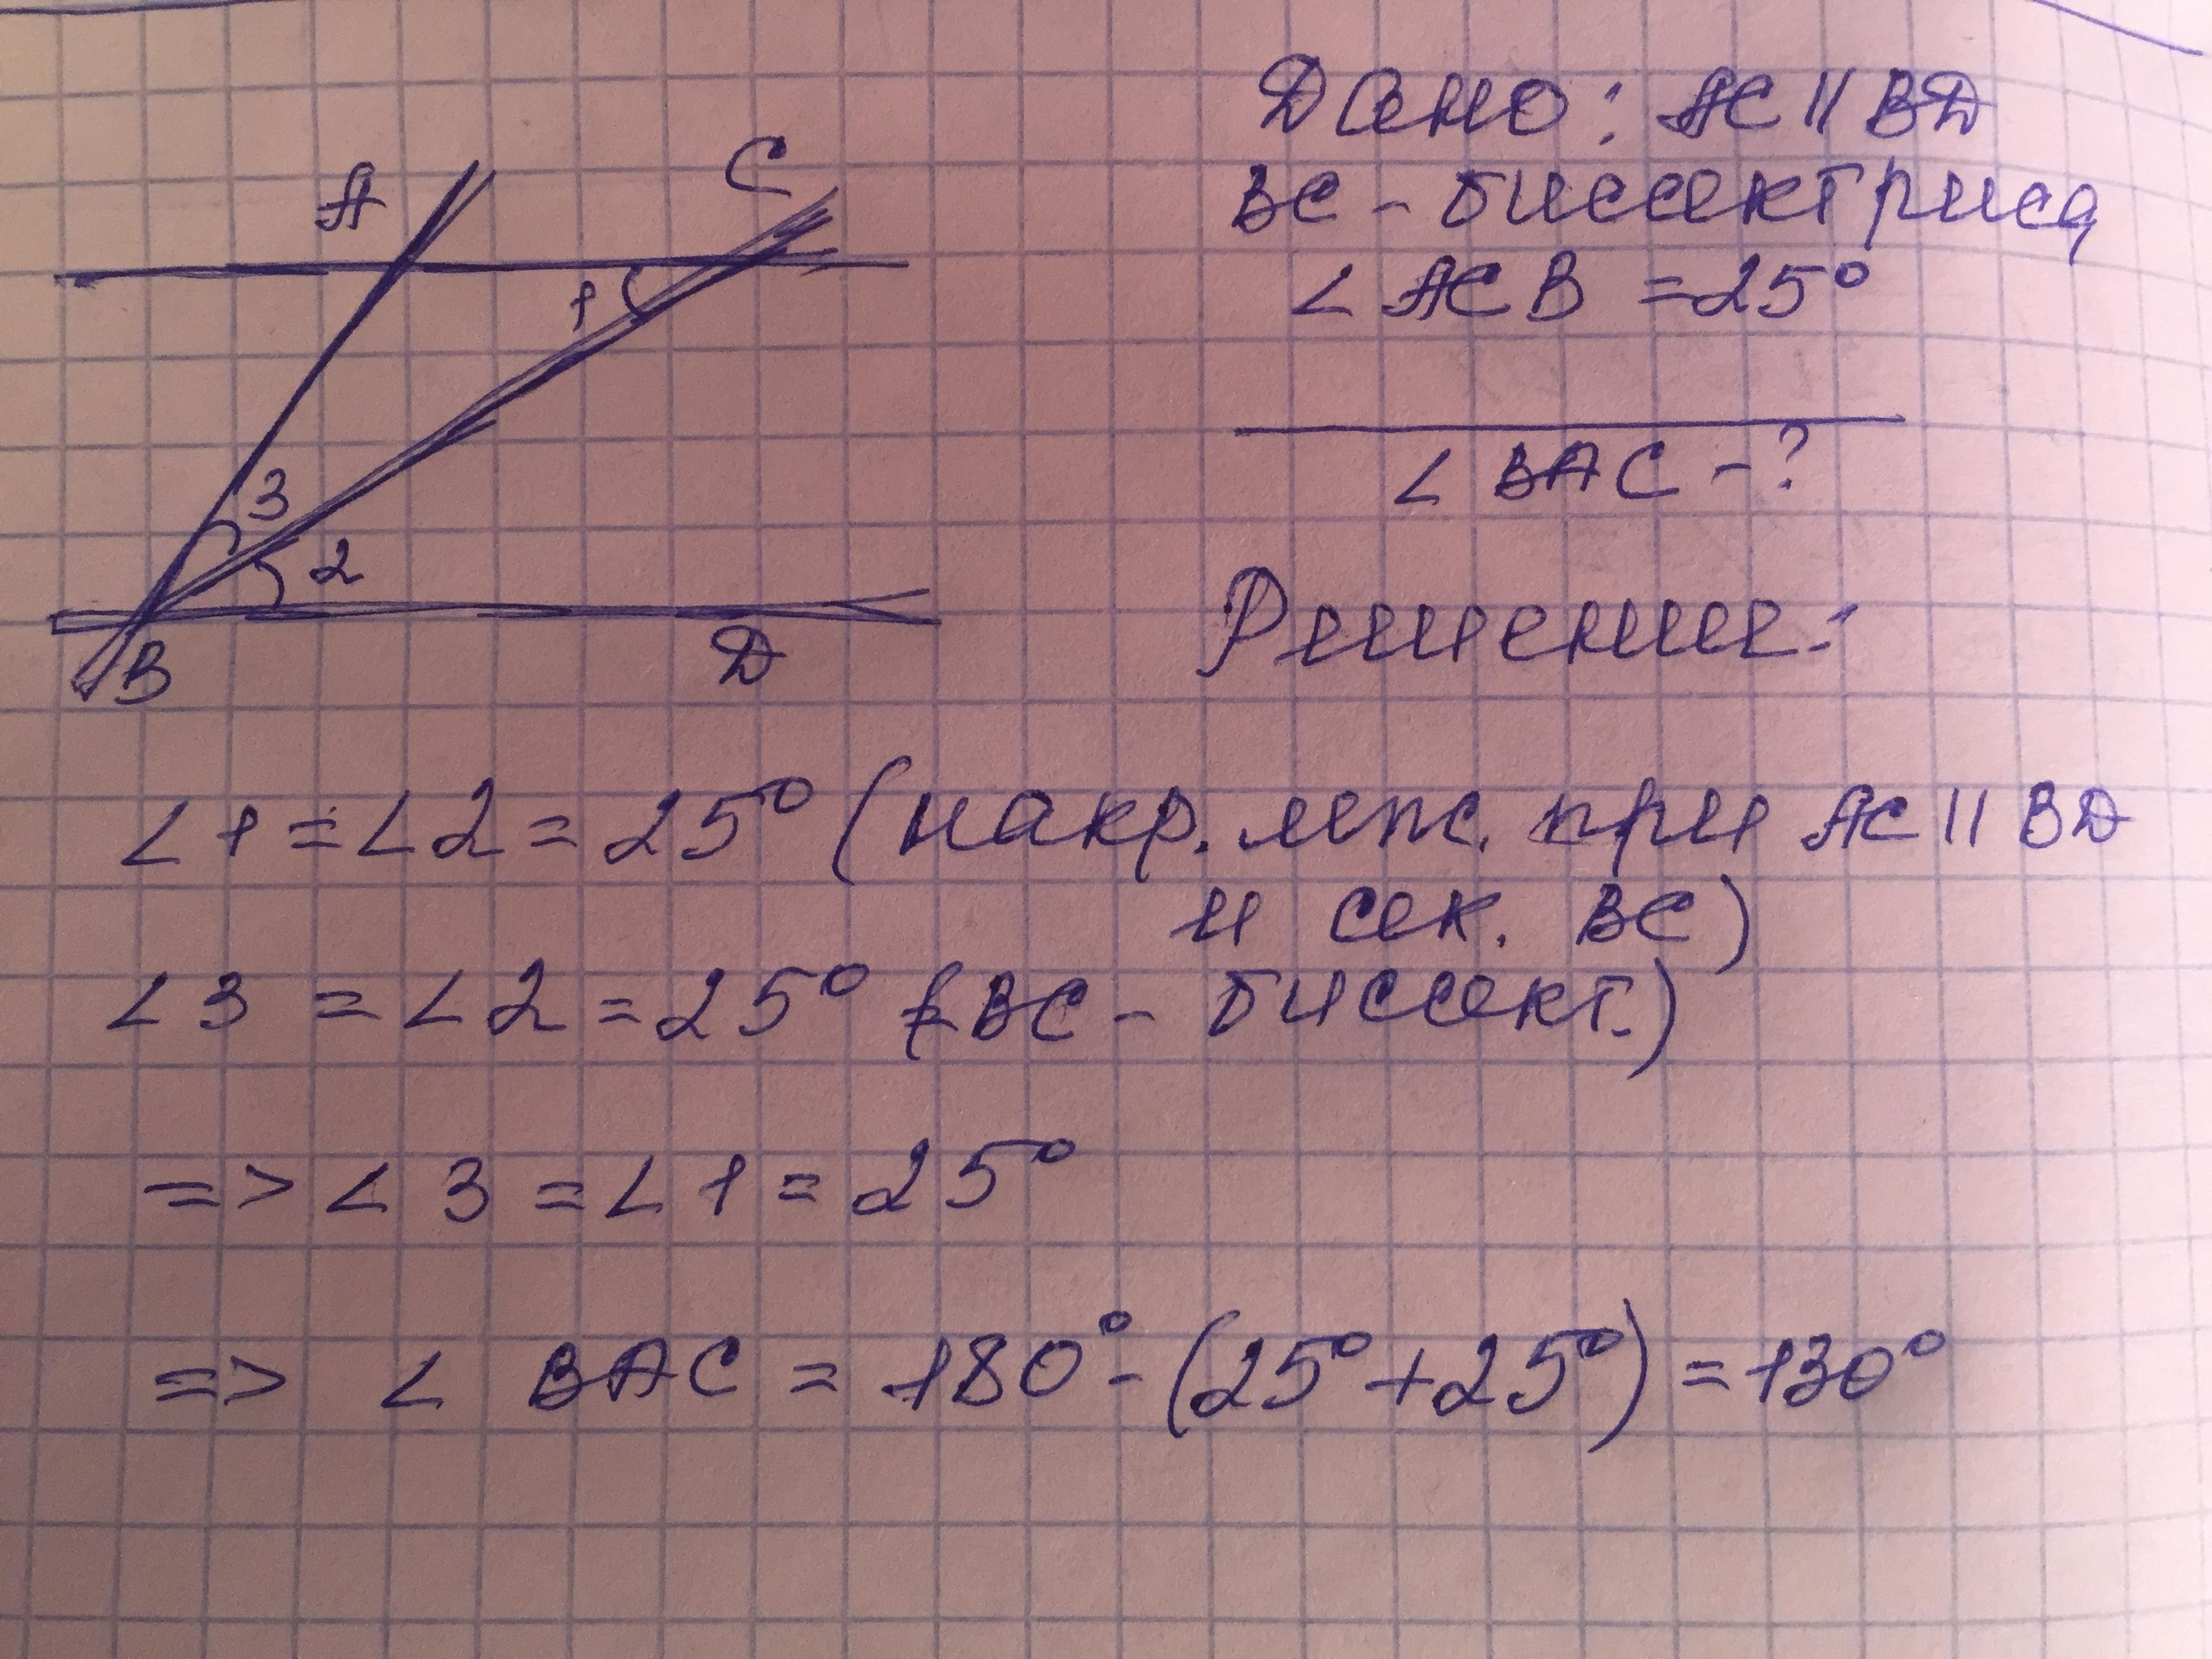 Дано: AC || BD
BC - биссектриса
∠ ACB = 25°
∠ BAC - ?
A
C
1
3
2
B
D
Решение:
∠1 = ∠2 = 25° (накр. леж. при AC || BD
и сек. BC)
∠3 = ∠2 = 25° (BC - биссект.)
=> ∠3 = ∠1 = 25°
=> ∠ BAC = 180° - (25° + 25°) = 130°